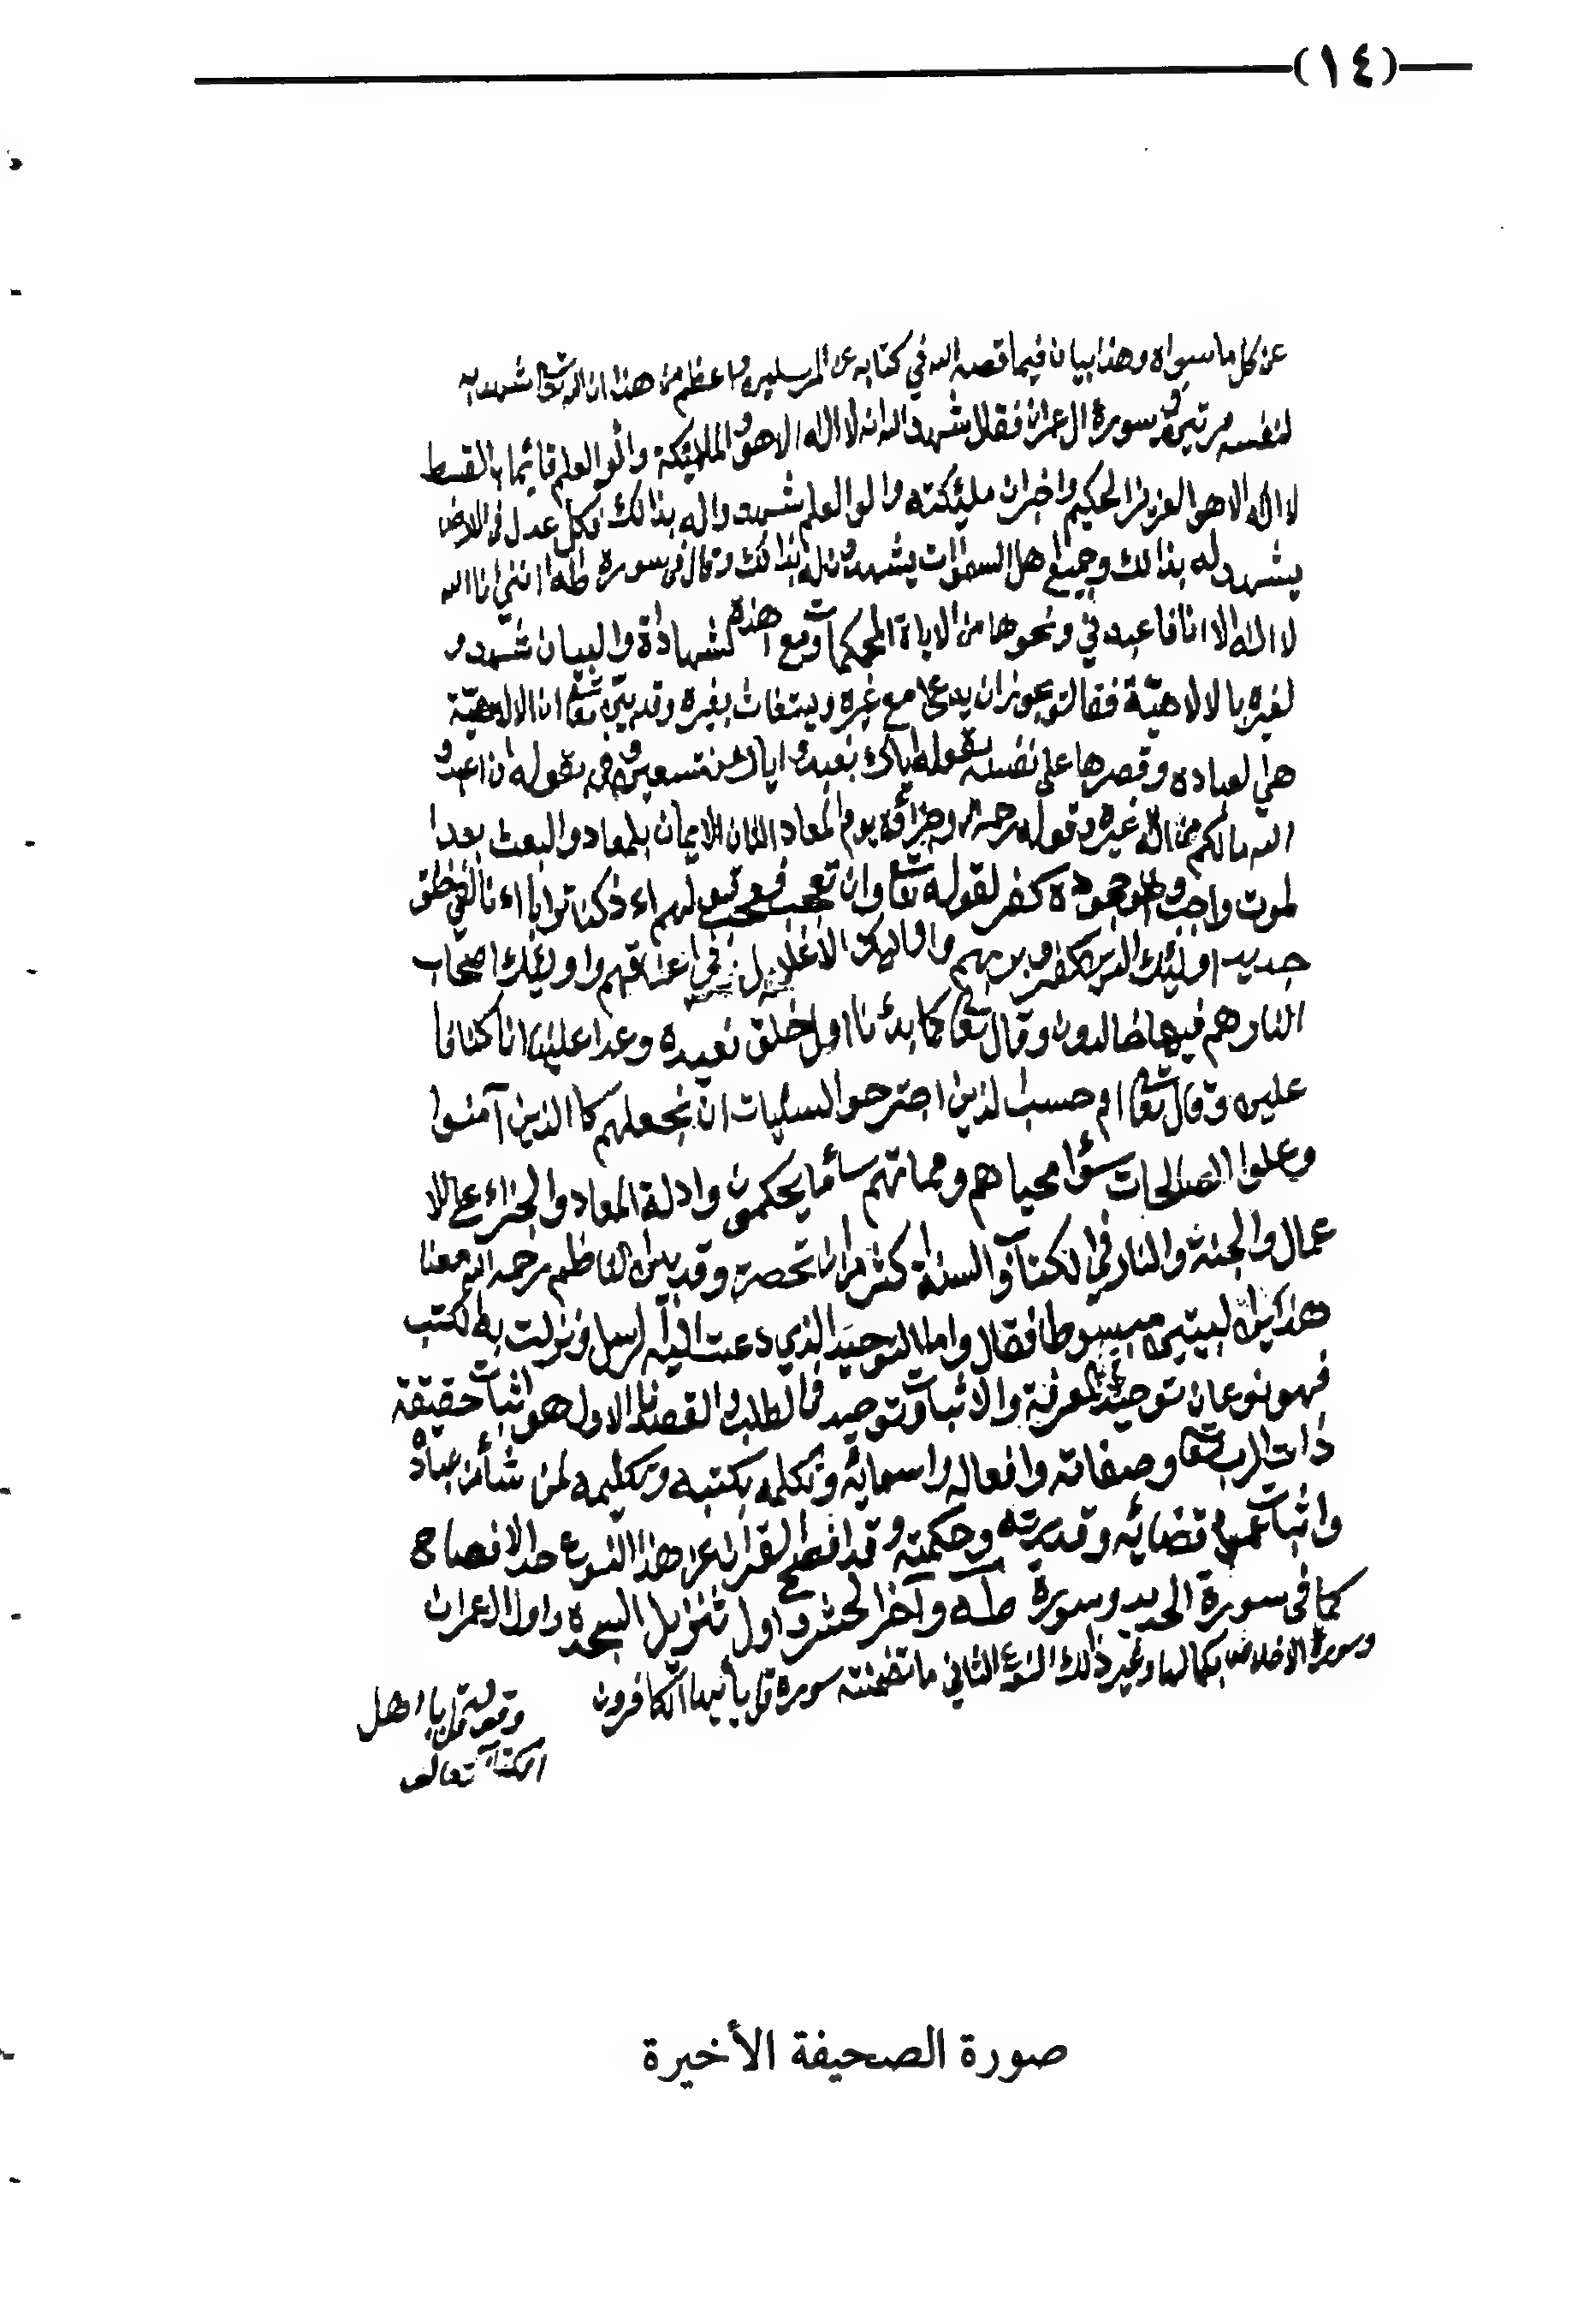 (١٤)
عن كل ما سواه وهذا بيان فيما قصه الله في كتابه عن المرسلين واعظم من هذا ان الله تعا شهد به
لنفسه مرتين في سورة ال عمران فقال شهد الله انه لا اله الا هو والملئيكة واولو العلم قائيما بالقسط
لا اله الا هو العزيز الحكيم واخبر ان مليئكته والو العلم شهدو اله بذالك فكل عدل في الارض
يشهد له بذالك وجميع اهل السموات يشهدون له بذالك وقال في سورة طه انني انا الله
لا اله الا انا فاعبدني ونحوها من الاياة المحكمات ومع هذه الشهادة والبيان شهدو
لغيره بالالاهيّة فقالو يجوز ان يدعى مع غيره ويستغاث بغيره وقد بيّن تعا ان الالاهيّة
هي لعباده وقصرها على نفسه بقوله اياك نعبد واياك نستعين وفي بقوله ان اعبدو
الله مالكم من اله غيره وقوله رحمه الله يوم المعاد الايمان بلمعاد والبعث بعد ا
لموت واجب وجحوده كفر لقوله تعا وان تعجب فعجب قولهم اءذ كنا ترابا اءنا لفي خلق
جديد اوليئك الذين كفرو بربهم واوليك الاغلال في اعناقهم واوليئك اصحاب
النار هم فيها خالدون وقال تعا كما بدئنا اول خلق نعيده وعدا علينا انا كنا فا
علين وقال تعا ام حسب الذين اجترحوا السئيات ان نجعلهم كا الذين آمنوا
وعلوا الصلالحات سوٱ محياهم ومماتهم سأ ما يحكمون وادلة المعاد والجزاء على الا
عمال والجنة والنار في الكتاب والسنة اكثر من ان تحصر وقد بين الناظم رحمه الله معنا
هذين البيتين مبسوطا فقال واما التوحيد الذي دعت اليه الرسل ونزلت به الكتب
فهو نوعان توحيد المعرفة والاثبات وتوحيد في الطلب والقصد فالاول هو اثبات حقيقة
ذات الرب تعا وصفاته وافعاله واسمائه وتكلمه بكتبه وتكليمه لمن شأ من عباده
واثبات عموم قضائيه وقدرته وحكمته وقد افصح القران عن هذا النوع حد الافصاح
كما في سورة الحديد وسورة طه وآخر الحشر واول تنزيل السجده واول ال عمران
وسورة الاخلاص بكمالها وغير ذالك النوع الثاني ما تضمنته سورة قل يأيها الكافرون
وقوله قل يا اهل
الكتاب تعالو
صورة الصحيفة الأخيرة